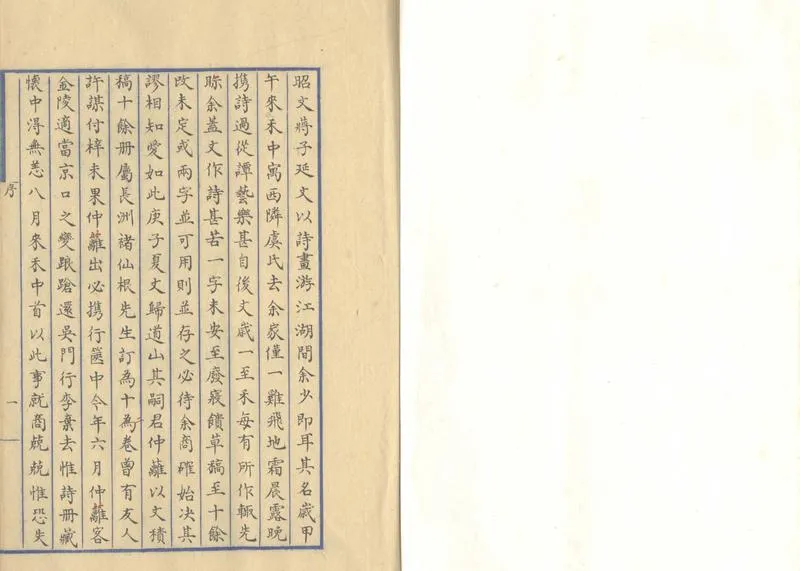 昭文蔣子延文以詩畫游江湖間余少即耳其名歲甲
午來禾中寓西隣虞氏去余家僅一雞飛地霜晨露晚
携詩過從譚藝樂甚自後文歲一至禾每有所作輒先
眎余蓋文作詩甚苦一字未安至廢寢饋草稿至十餘
改未定或兩字並可用則並存之必待余商確始决其
謬相知愛如此庚子夏文歸道山其嗣君仲蘺以文積
稿十餘册屬長洲諸仙根先生訂為十卷曾有友人
許謀付梓未果仲蘺出必携行篋中今年六月仲蘺客
金陵適當京口之變踉蹌還吳門行李棄去惟詩册藏
懷中得無恙八月來禾中首以此事就商兢兢惟恐失
序
一